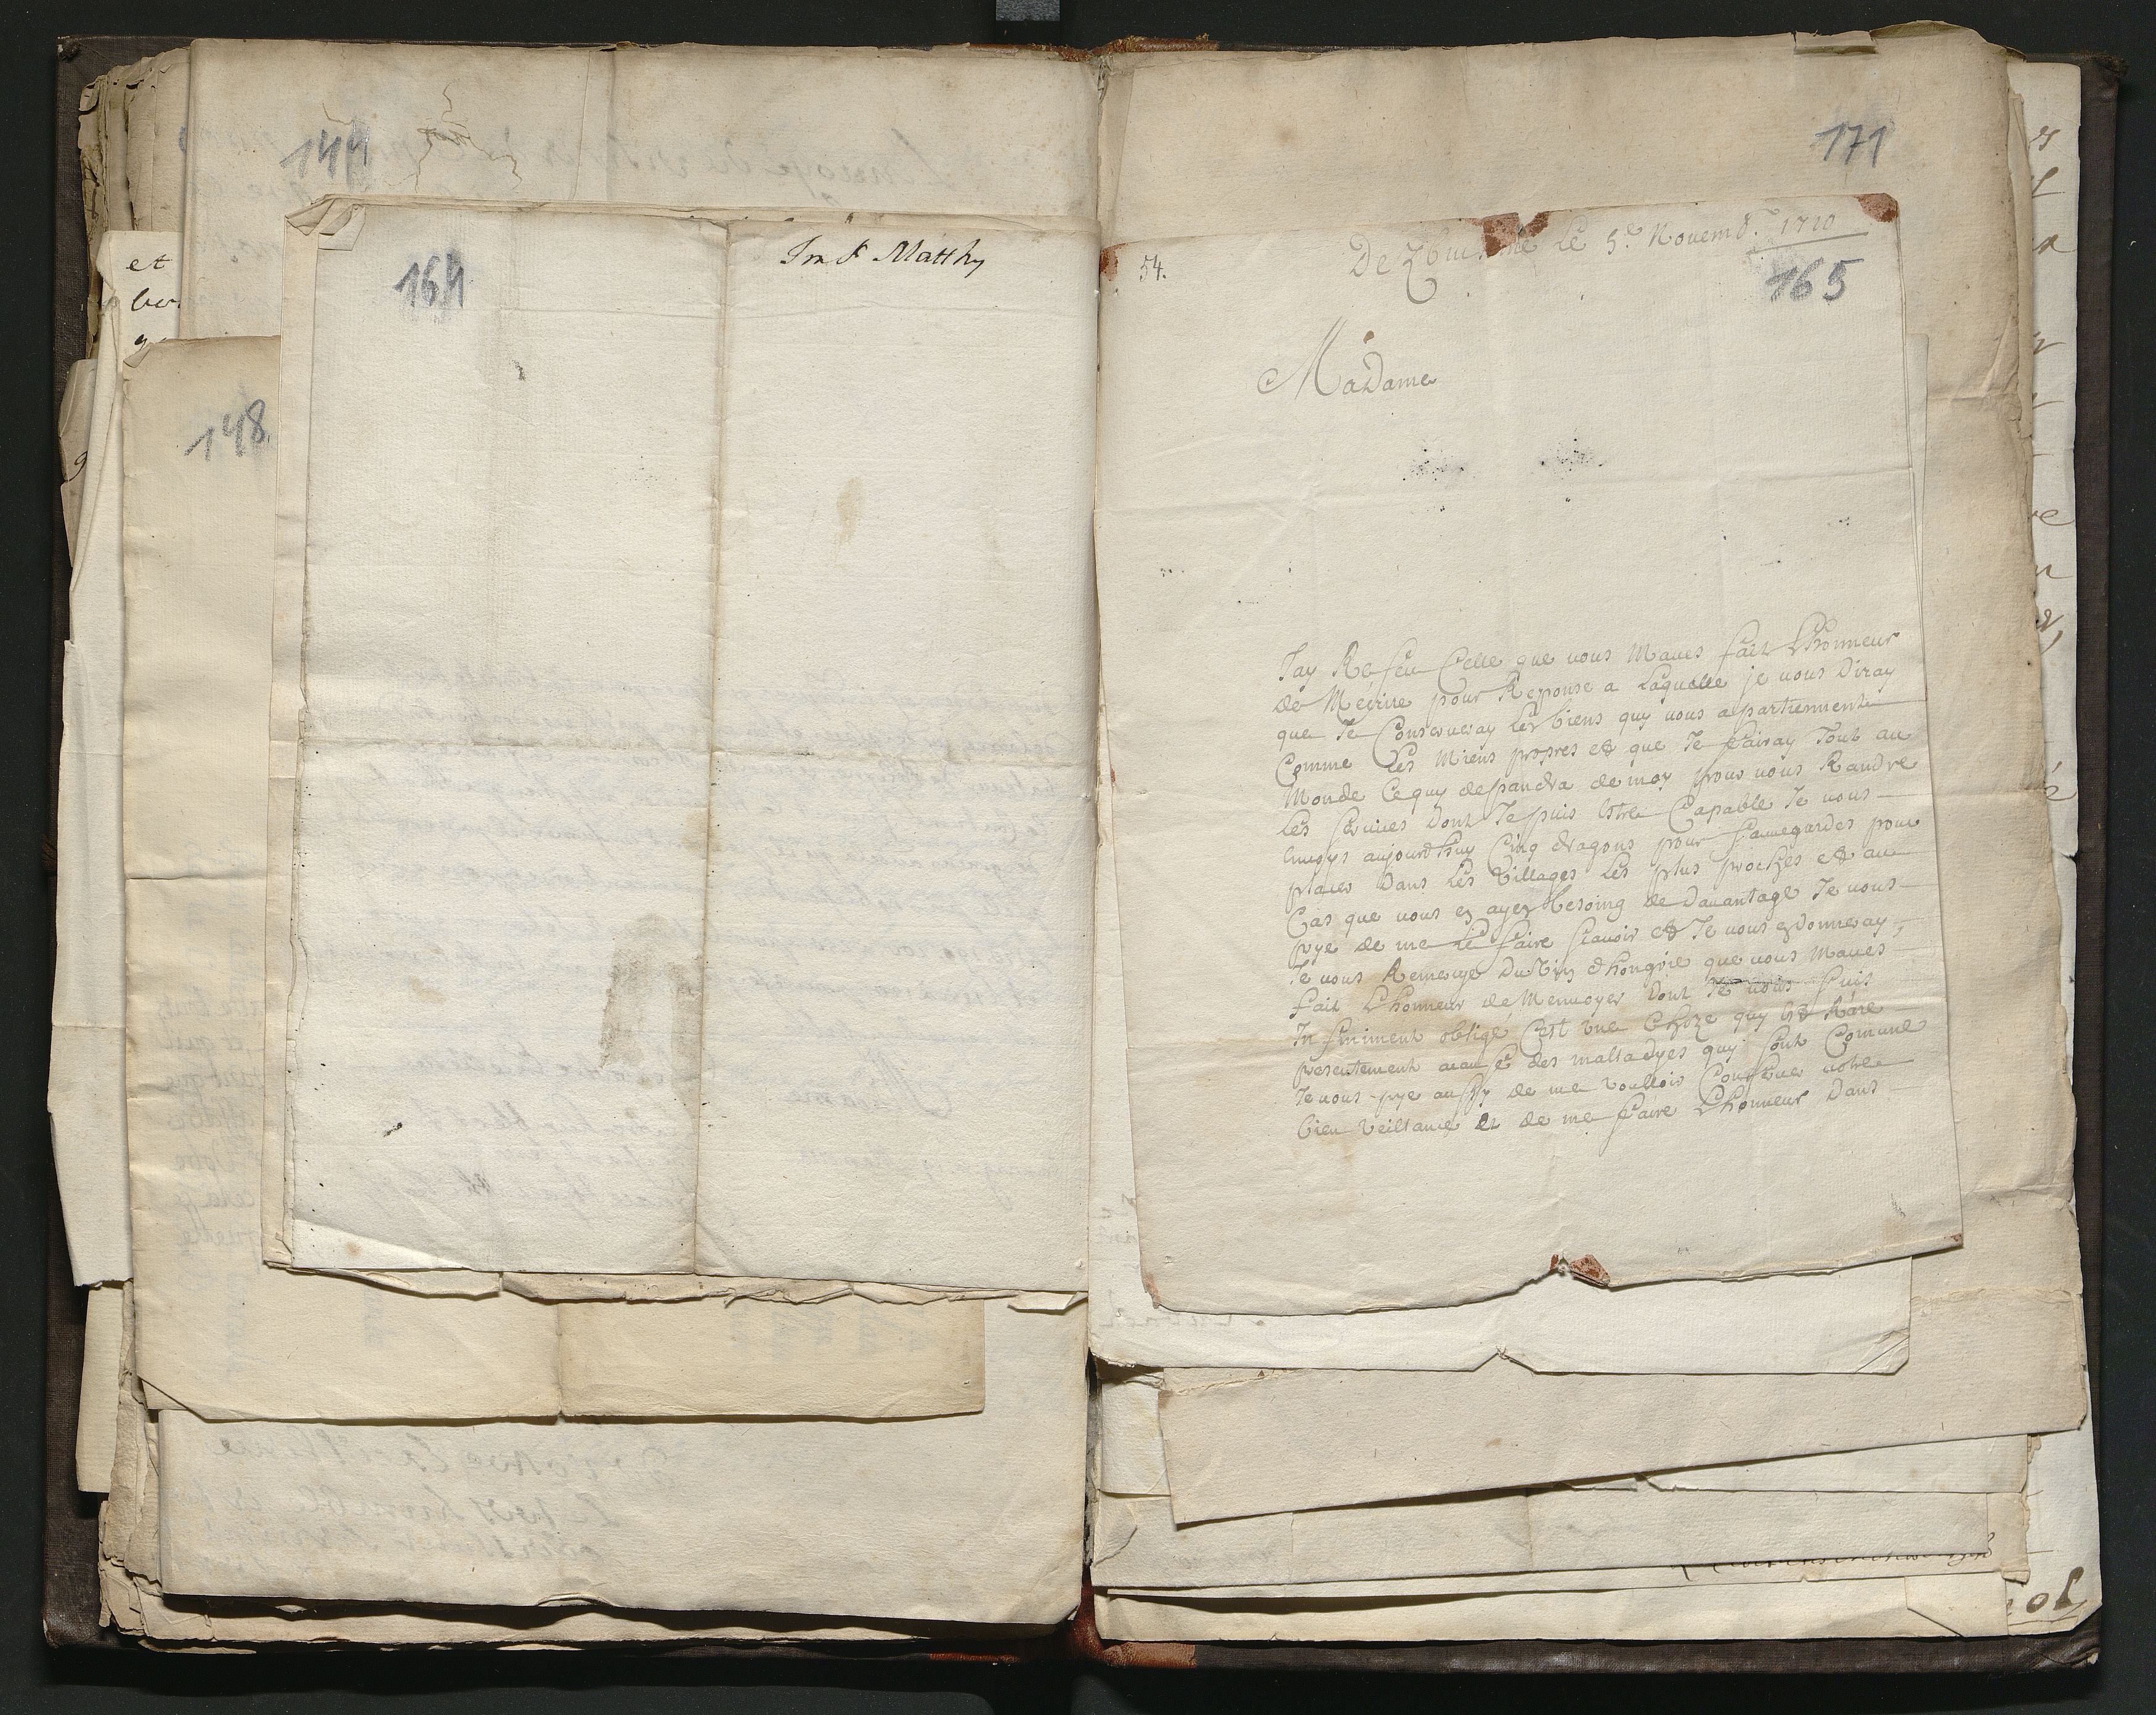 144
164
148
et
Im & Matthy
171
54.
De le 5.e Nouemb. 1710
165
Madame
Jay Reseu Celle que vous Maues fait Lhonneur
de Mecrire pour Reponse a Laquelle je vous Diray
que Je Conserueray Les biens quy vous appartiennent
Comme Les Miens propres et que Je fairay Tout au
Monde Cequy depandra de moy pour vous Randre
Les seruices Dont Je puis Estre Capable Je vous
Enuoys aujourdhuy Cinq dragons pour Sauuegardes pour
placer Dans Les Villages Les plus proches et au
Cas que vous en ayez besoing de Dauantage Je vous
prye de me Le faire scauoir et Je vous endonneray
Je vous Remercye Du Vin dhongrie que vous Maues
fait Lhonneur de Menuoyer Dont Je vous suis
Infiniment obligé Cest vne Choze quy est Rare
presentement a des malladyes quy sont Comune
Je vous prye aussy de me voulloir Conseruer votre
bien veillance et de me faire Lhonneur Dans